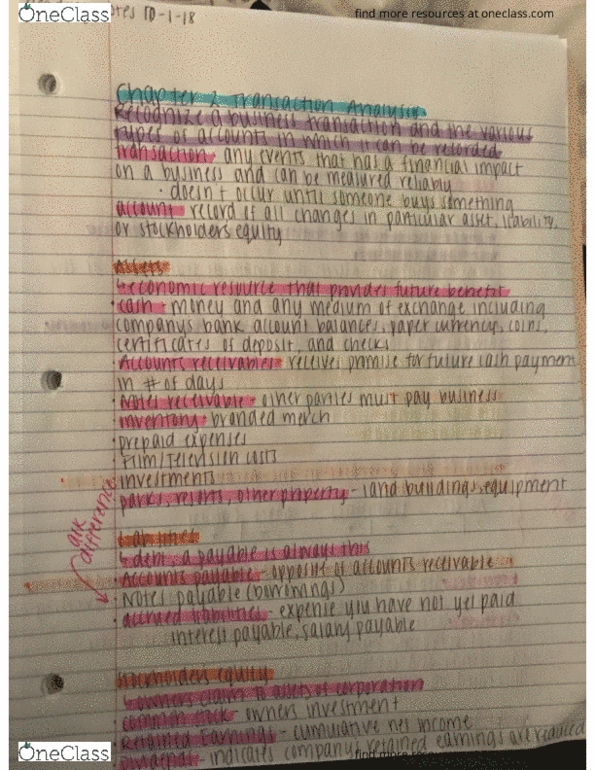 OneClass
notes 10-1-18
find more resources at oneclass.com
Chapter 2 Transaction Analysis
Recognize a business transaction and the various
types of accounts in which it can be recorded
transaction- any events that has a financial impact
on a business and can be measured reliably
· doesn't occur until someone buys something
account- record of all changes in particular asset, liability,
or stockholders equity
Assets
↳ economic resource that provides future benefit
· cash - money and any medium of exchange including
companys bank account balances, paper currency, coins,
certificates of deposit, and checks
· Accounts receivables- receives promise for future cash payment
in # of days
· Notes receivable- other parties must pay business
· inventory- branded merch
· prepaid expenses
· Film/Television costs
· investments
· parks, resorts, other property - land buildings, equipment
ask
difference
Liabilities
↳ debt- a payable is always this
· Accounts payable- opposite of accounts receivable
· Notes payable (borrowings)
· accrued liabilities - expense you have not yet paid
interest payable, salary payable
Stockholders Equity
↳ owners claim to assets of corporation
· common stock- owners investment
· Retained Earnings- cumulative net income
· Dividends- indicates company retained earnings are reduced
OneClass
find more